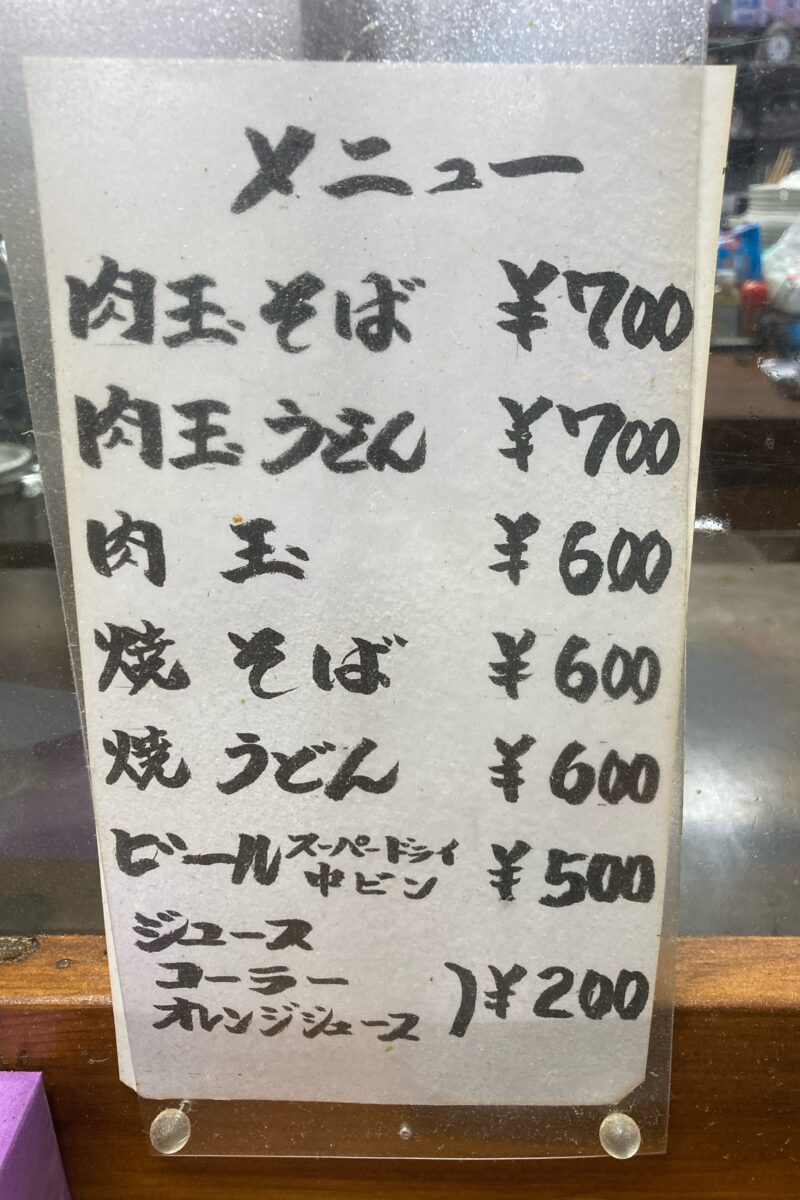 メニュー
肉玉そば ¥700
肉玉うどん ¥700
肉玉 ¥600
焼そば ¥600
焼うどん ¥600
ビール スーパードライ 中ビン ¥500
ジュース
コーラー
オレンジジュース ) ¥200